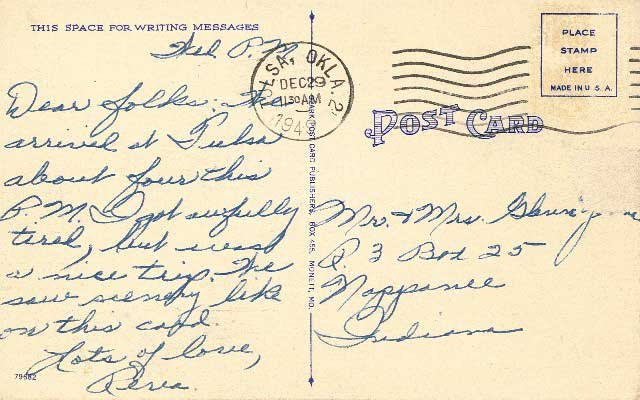 THIS SPACE FOR WRITING MESSAGES
Wed P.M.
Dear folks: We
arrived at Tulsa
about four this
P.M. I got awfully
tired, but was
a nice trip. We
saw scenery like
on this card.
Lots of love,
79682
TULSA, OKLA. 2
DEC 29
11 30 AM
194
PLACE
STAMP
HERE
MADE IN U.S.A.
POST CARD
POST CARD PUBLISHERS, BOX 455, MONETT, MO.
Mr. & Mrs.
R. 3 Box 25
Nappanee
Indiana